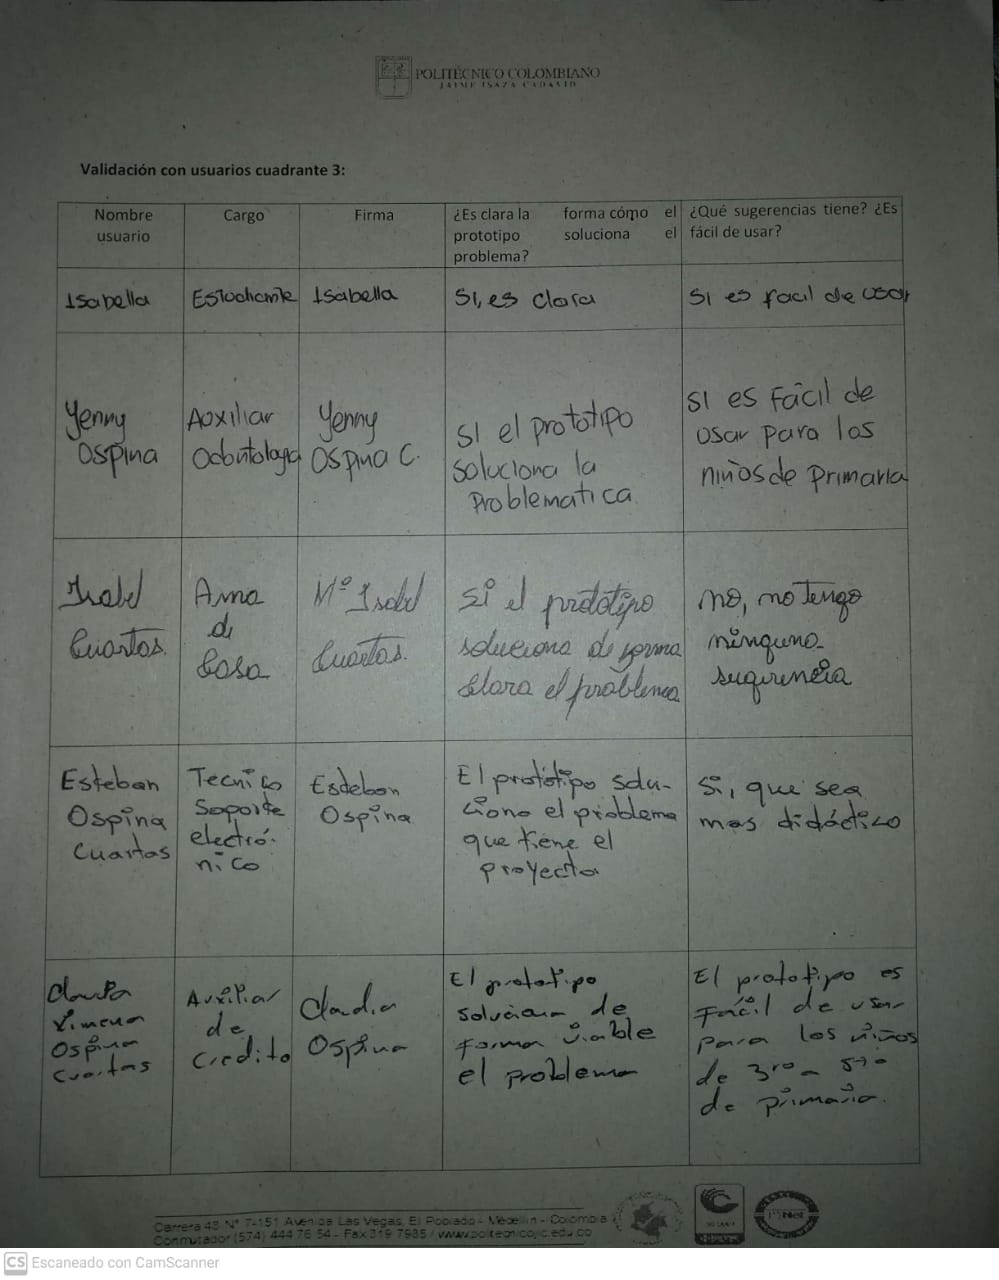 POLITÉCNICO COLOMBIANO
JAIME ISAZA CADAVID
Validación con usuarios cuadrante 3:
Nombre usuario
Cargo
Firma
¿Es clara la forma cómo el
prototipo soluciona el
problema?
¿Qué sugerencias tiene? ¿Es
fácil de usar?
Isabella
Estudiante
Isabella
SI, es clara
SI es facil de usar
Yenny
Ospina
Auxiliar
Odontologia
Yenny
Ospina C.
SI el prototipo
soluciona la
Problematica
SI es Fácil de
usar para los
niños de Primaria
Isabel
Cuartas.
Ama
de
Casa
Mª Isabel
Cuartas.
Si el prototipo
soluciona de forma
clara el problema
no, no Tengo
ninguna
sugerencia
Esteban
Ospina
Cuartas
Tecnico
Soporte
electró-
nico
Esteban
Ospina
El prototipo solu-
ciona el problema
que tiene el
proyecto
Si, que sea
mas didáctico
Claudia
Ximena
Ospina
Cuartas
Auxiliar
de
Credito
Claudia
Ospina
El prototipo
soluciona de
forma viable
el problema
El prototipo es
Fácil de usar
para los niños
de 3ro a 5to
de primaria.
Carrera 48 N° 7-151 Avenida Las Vegas, El Poblado - Medellín - Colombia
Conmutador (574) 444 76 54 - Fax 319 7985 / www.politecnicojic.edu.co
IQNet
CS Escaneado con CamScanner